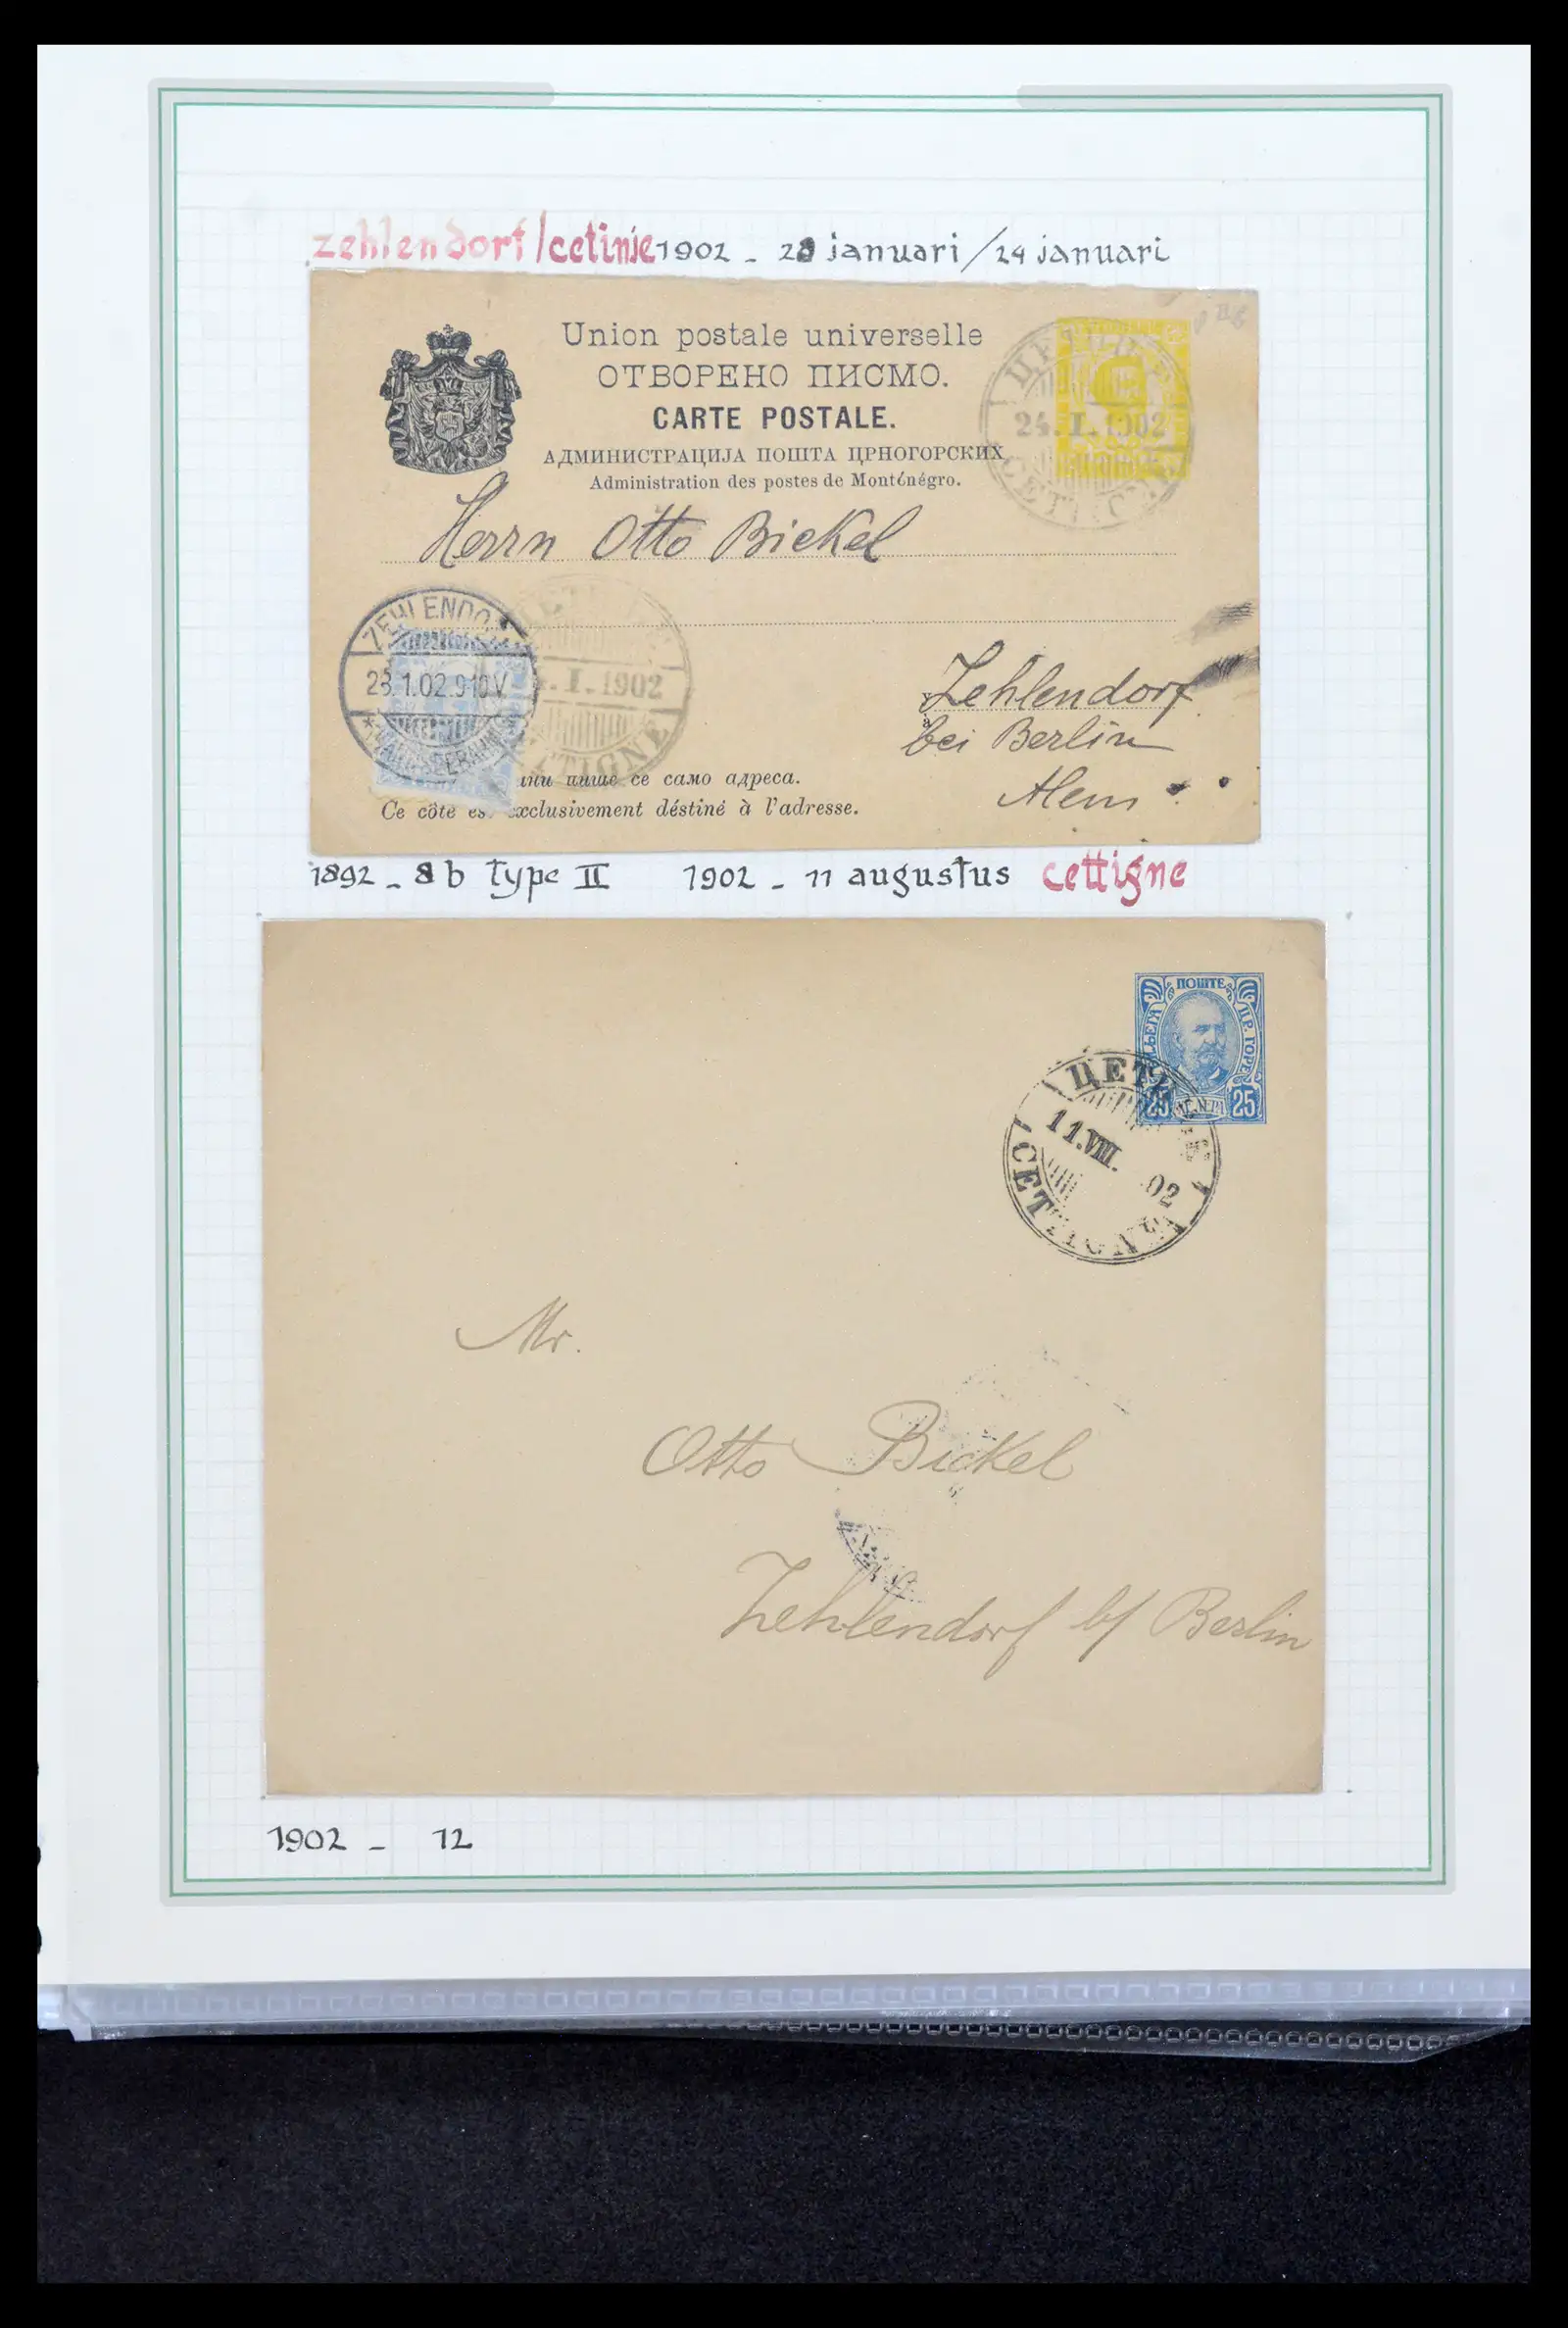 zehlendorf/cetinje 1902 - 28 januari/24 januari
Union postale universelle
ОТВОРЕНО ПИСМО.
CARTE POSTALE.
АДМИНИСТРАЦИЈА ПОШТА ЦРНОГОРСКИХ
Administration des postes de Monténégro.
24.I.1902
Herrn Otto Bickel
ZEHLENDO
28.1.02.9-10V
I.1902
TIGNE
Zehlendorf
bei Berlin
пише се само адреса.
Ce côté es exclusivement déstiné à l'adresse.
1892 - 8b type II 1902 - 11 augustus cettigne
ПОШТЕ
ЦР. ГОРЕ
25 25
ЦЕТ
11.VIII. 02
CETTIGNE
Mr.
Otto Bickel
Zehlendorf b/ Berlin
1902 - 12